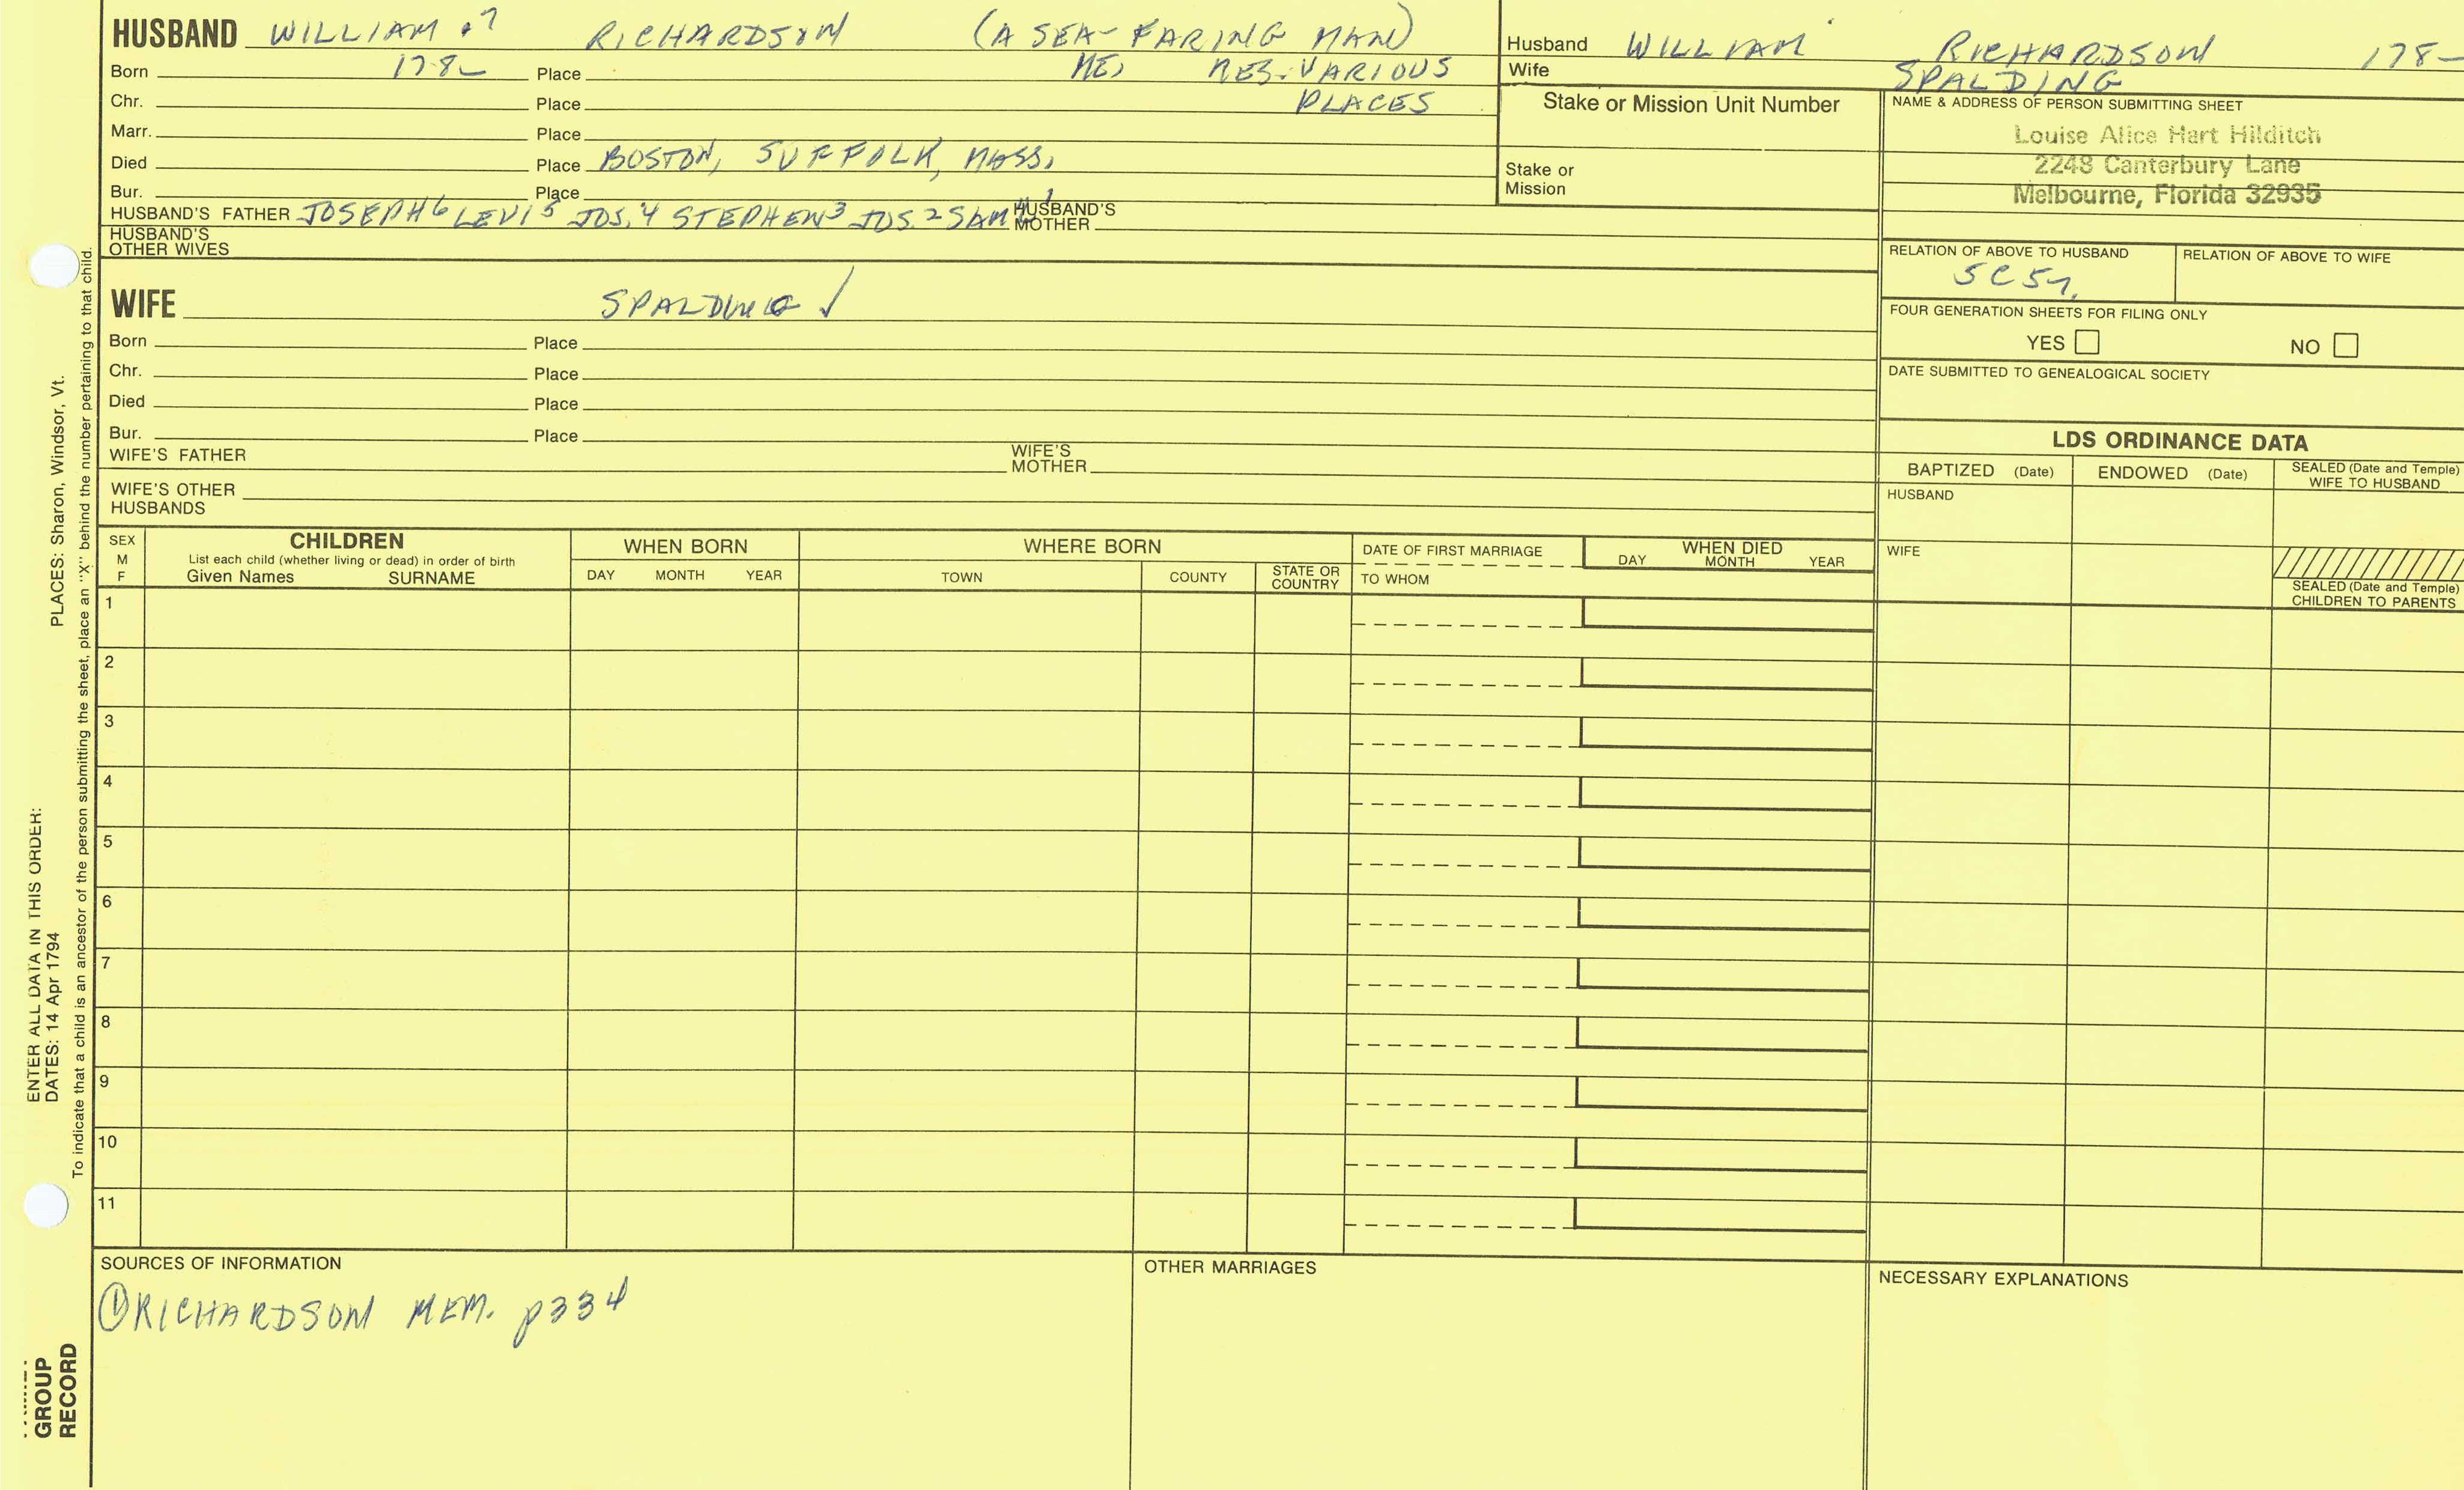 HUSBAND WILLIAM .7 RICHARDSON (A SEA-FARING MAN)
Born 178- Place ME, RES. VARIOUS
Chr. Place PLACES
Marr. Place
Died Place BOSTON, SUFFOLK, MASS.
Bur. Place
HUSBAND'S FATHER JOSEPH6 LEVI5 JOS.4 STEPHEN3 JOS.2 SAM'L1 HUSBAND'S MOTHER
HUSBAND'S OTHER WIVES
WIFE SPALDING ✓
Born Place
Chr. Place
Died Place
Bur. Place
WIFE'S FATHER WIFE'S MOTHER
WIFE'S OTHER HUSBANDS
Husband WILLIAM RICHARDSON 178-
Wife SPALDING
Stake or Mission Unit Number
Stake or Mission
NAME & ADDRESS OF PERSON SUBMITTING SHEET
Louise Alice Hart Hilditch
2248 Canterbury Lane
Melbourne, Florida 32935
RELATION OF ABOVE TO HUSBAND RELATION OF ABOVE TO WIFE
5C5
FOUR GENERATION SHEETS FOR FILING ONLY
YES NO
DATE SUBMITTED TO GENEALOGICAL SOCIETY
LDS ORDINANCE DATA
BAPTIZED (Date) ENDOWED (Date) SEALED (Date and Temple) WIFE TO HUSBAND
HUSBAND
WIFE
SEALED (Date and Temple) CHILDREN TO PARENTS
SEX M F CHILDREN WHEN BORN WHERE BORN DATE OF FIRST MARRIAGE WHEN DIED
List each child (whether living or dead) in order of birth
Given Names SURNAME DAY MONTH YEAR TOWN COUNTY STATE OR COUNTRY TO WHOM DAY MONTH YEAR
1
2
3
4
5
6
7
8
9
10
11
SOURCES OF INFORMATION OTHER MARRIAGES NECESSARY EXPLANATIONS
① RICHARDSON MEM. p334
ENTER ALL DATA IN THIS ORDER:
DATES: 14 Apr 1794 PLACES: Sharon, Windsor, Vt.
To indicate that a child is an ancestor of the person submitting the sheet, place an "X" behind the number pertaining to that child.
GROUP
RECORD